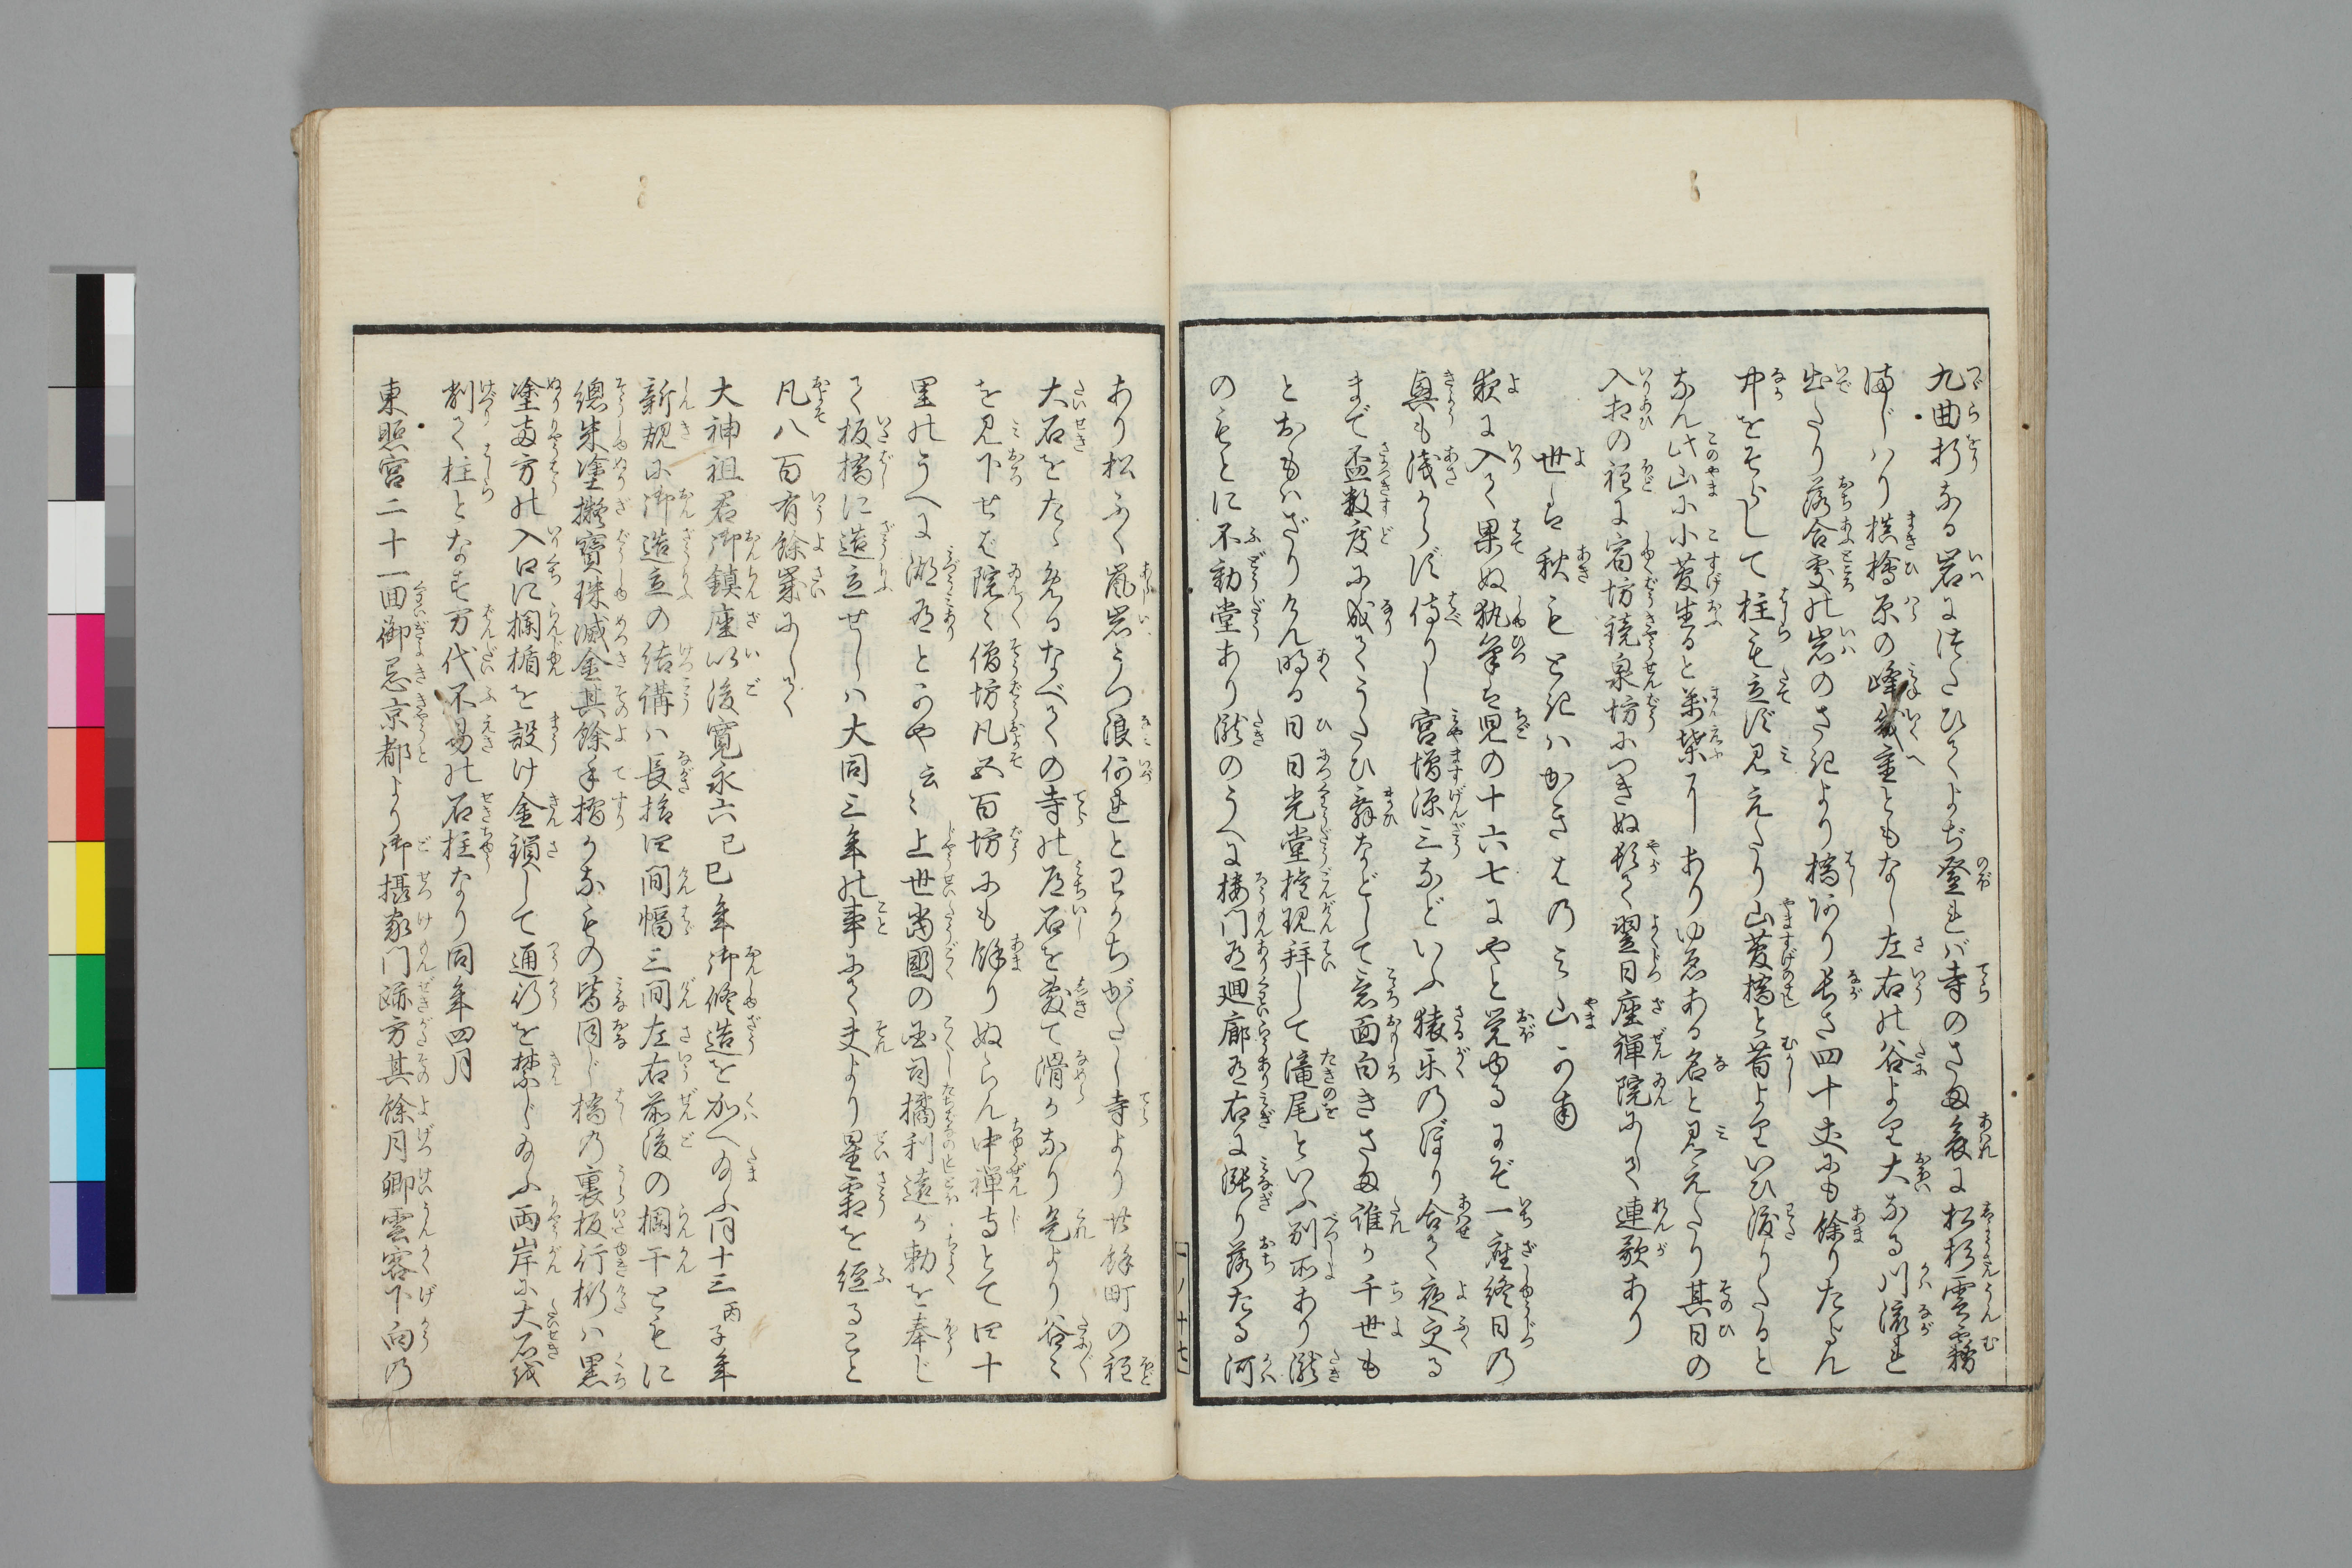 九曲折なる岩につたひてよぢ登れば寺のさま哀に松杉雲霧
まじはり槙檜原の峰幾重ともなし左右の谷より大なる川流れ
出たり落合処の岩のさきより橋有り長さ四十丈にも余りたらん
中をそらして柱も立ず見えたり山菅橋と昔よりいひ渡りたると
なん此山に小菅生ると万葉にありゆゑある名と見えたり其日の
入相の程に宿坊鏡泉坊につきぬ頓て翌日座禅院にして連歌あり
世は秋もときはかきはのみ山かな
夜に入て果ぬ執筆は児の十六七にやと覚ゆるにぞ一座終日の
興も浅からず侍りし宮増源三などいふ猿楽のぼり合て夜更る
まで盃数度に成てうたひ舞などして意面白きさま誰か千世も
とおもはざりけん明る日日光堂権現拝して滝尾といふ別所あり滝
のもとに不動堂あり滝のうへに楼門有廻廊有右に漲り落たる河
あり松ふく嵐岩うつ浪何れとわかちがたし寺より廿余町の程
大石をたゝめるなべての寺の道石を敷て滑かなり是より谷〻
を見下せば院々僧坊凡五百坊にも余りぬらん中禅寺とて四十
里のうへに湖有とかや云〻上世当国の国司橘利遠が勅を奉じ
て板橋に造立せしは大同三年の事にて夫より星霜を経ること
凡八百有余歳にして
大神祖君御鎮座以後寛永六己巳年御修造を加へ給ふ同十三丙子年
新規に御造立の結講は長拾四間幅三間左右前後の欄干ともに
総朱塗擬宝珠滅金其余手摺かなもの皆同じ橋の裏板行桁は黒
塗両方の入口に欄楯を設け金鎖して通行を禁じ給ふ両岸に大石を
刻て柱となす万代不易の石柱なり同年四月
東照宮二十一回御忌京都より御摂家門跡方其余月卿雲客下向の
一ノ十七